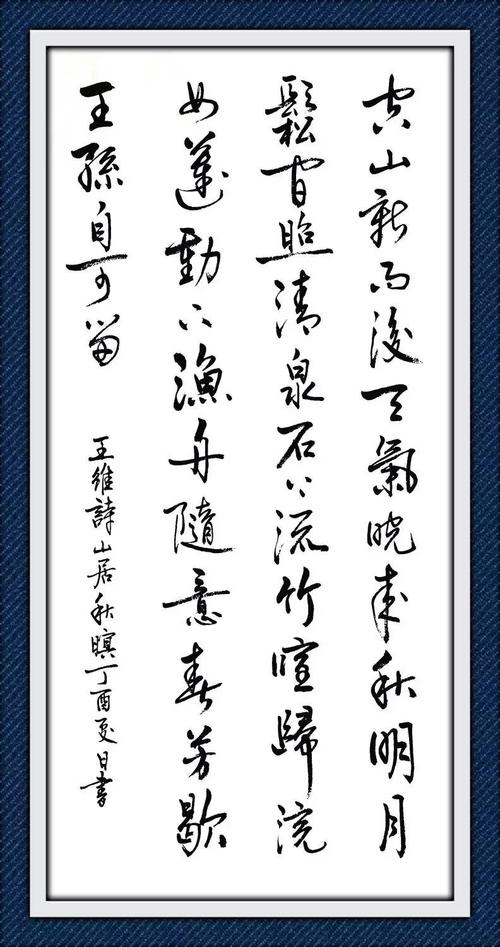 空山新雨後天氣晚來秋明月
鬆間照清泉石上流竹喧歸浣
女蓮動下漁舟隨意春芳歇
王孫自可留
王維詩山居秋暝丁酉夏日書